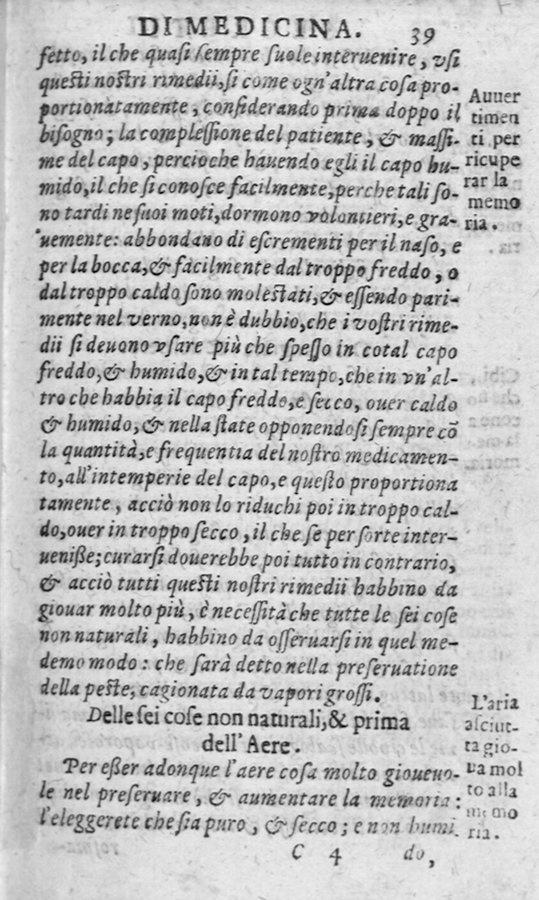 DI MEDICINA. 39
fetto, il che quasi sempre suole interuenire, vsi
questi nostri rimedii, si come ogn'altra cosa pro-
portionatamente, considerando prima doppo il
bisogno; la complessione del patiente, & massi-
me del capo, percioche hauendo egli il capo hu-
mido, il che si conosce facilmente, perche tali so-
no tardi ne suoi moti, dormono volontieri, e gra-
uemente: abbondano di escrementi per il naso, e
per la bocca, & facilmente dal troppo freddo, o
dal troppo caldo sono molestati, & essendo pari-
mente nel verno, non è dubbio, che i vostri rime-
dii si deuono vsare più che spesso in cotal capo
freddo, & humido, & in tal tempo, che in vn'al-
tro che habbia il capo freddo, e secco, ouer caldo
& humido, & nella state opponendosi sempre cõ
la quantità, e frequentia del nostro medicamen-
to, all'intemperie del capo, e questo proportiona
tamente, acciò non lo riduchi poi in troppo cal-
do, ouer in troppo secco, il che se per sorte inter-
ueniße; curarsi douerebbe poi tutto in contrario,
& acciò tutti questi nostri rimedii habbino da
giouar molto più, è necessità che tutte le sei cose
non naturali, habbino da osseruarsi in quel me-
demo modo: che sarà detto nella preseruatione
della peste, cagionata da vapori grossi.
Delle sei cose non naturali, & prima
dell'Aere.
Per eßer adonque l'aere cosa molto gioueuo-
le nel preseruare, & aumentare la memoria:
l'eleggerete che sia puro, & secco; e non humi
C 4 do,
Auuer
timen
ti per
ricupe
rar la
memo
ria.
L'aria
asciut-
ta gio-
ua mol
to alla
memo
ria.